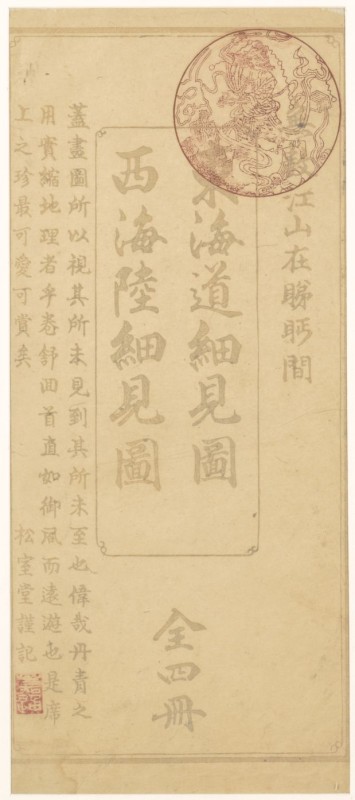 江山在睇眄間
東海道細見圖
西海陸細見圖
全四冊
蓋畫圖所以視其所未見到其所未至也偉哉丹青之
用實縮地理者乎卷舒回首直如御風而遠遊也是席
上之珍最可愛可賞矣
松室堂謹記